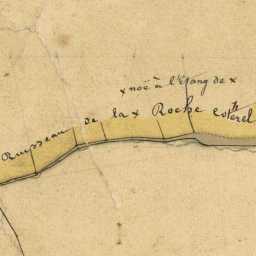 x noë à l'Etang de x
Ruisseau de la x Roche